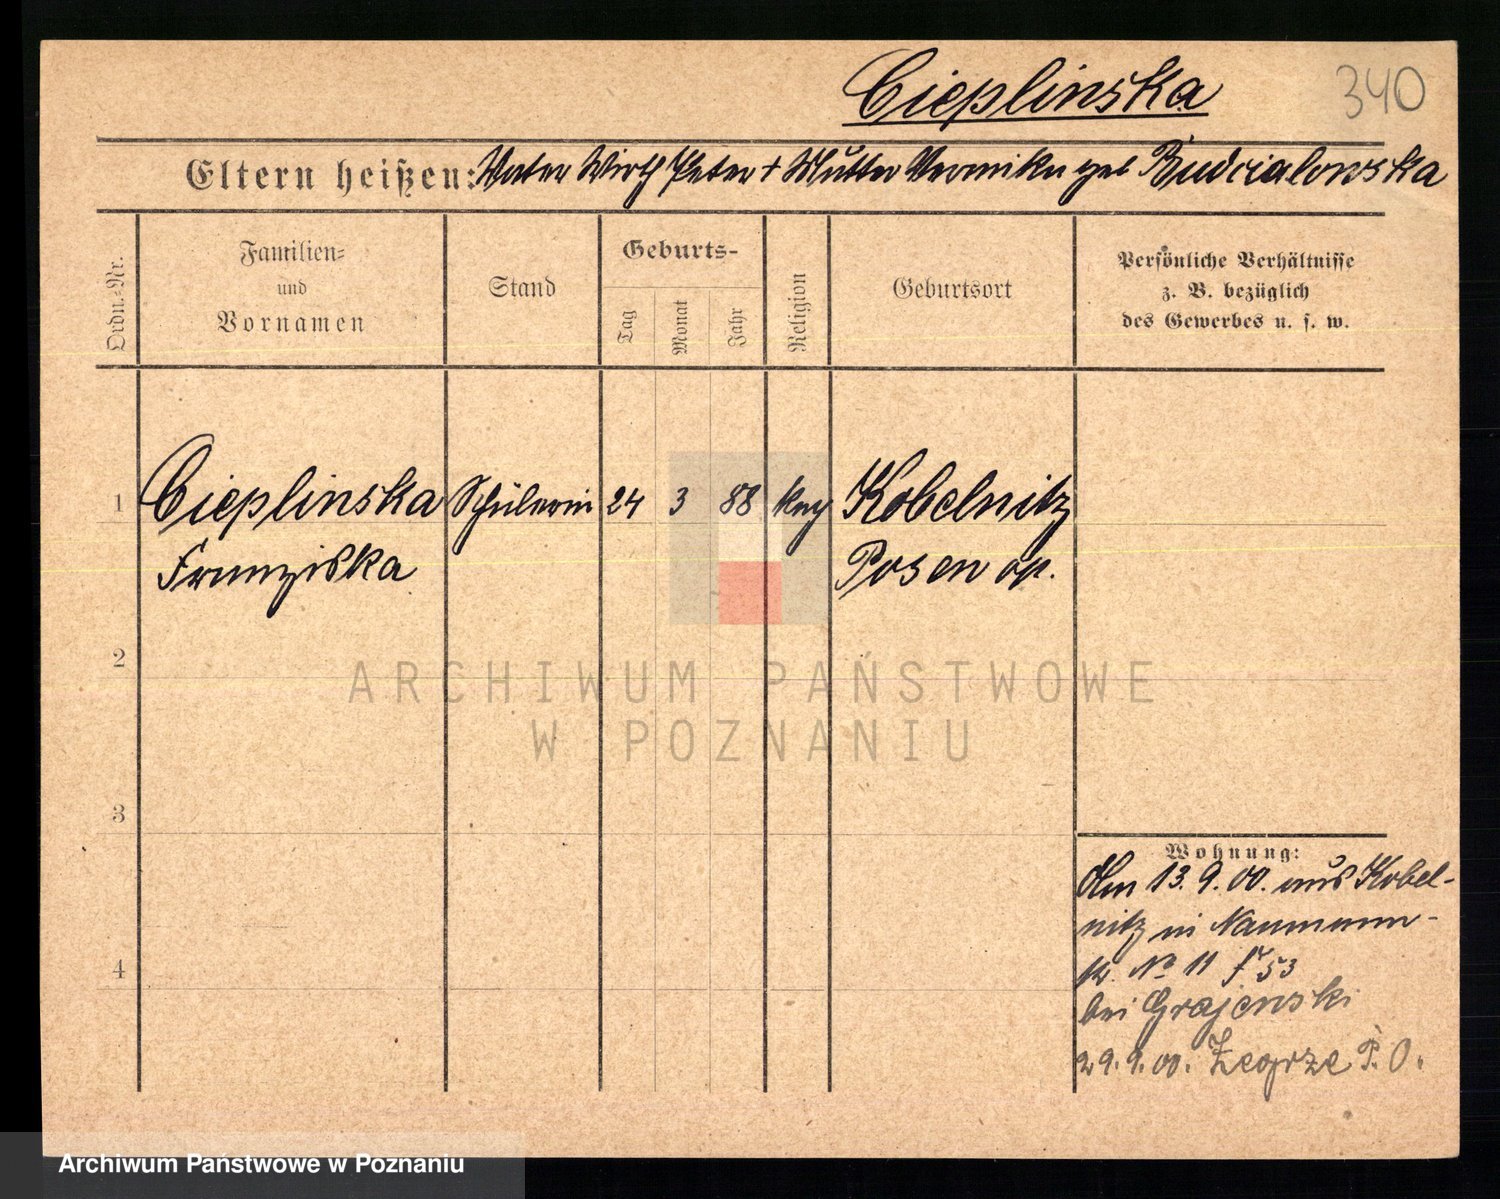 Cieplinska
340
Eltern heißen: Vater Wirth Peter + Mutter Veronika geb Budzialowska
Ordn.-Nr.
Familien-
und
Vornamen
Stand
Geburts-
Tag
Monat
Jahr
Religion
Geburtsort
Persönliche Verhältnisse
z. B. bezüglich
des Gewerbes u. s. w.
1
Cieplinska
Schülerin
24
3
88
Kobelnitz
Franziska
Posen op.
2
ARCHIWUM PAŃSTWOWE
W POZNANIU
3
4
Wohnung:
Am 13. 9. 00. aus Kobel-
nitz in Naumann-
str. No 11
bei Grajewski
29. 9. 00. Zegrze P. O.
Archiwum Państwowe w Poznaniu